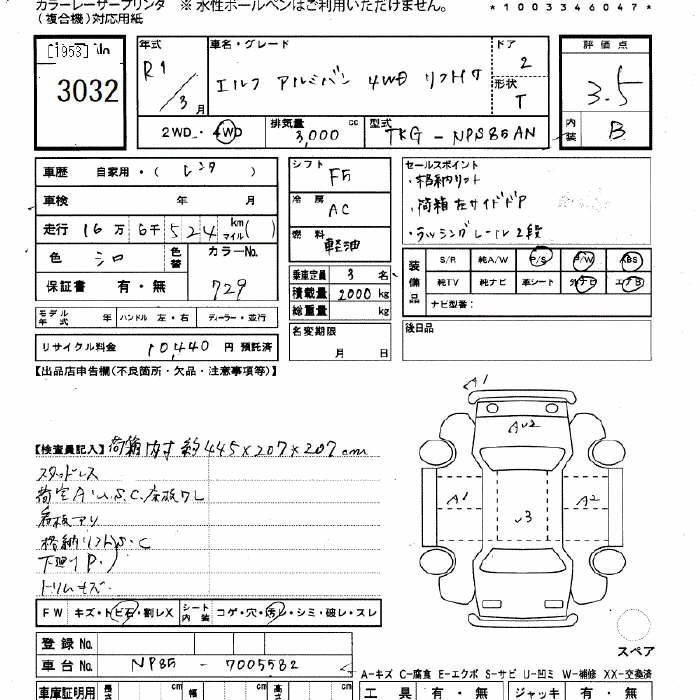 カラーレーザープリンタ ※水性ボールペンはご利用いただけません。
(複合機)対応用紙
*1003346047*
[1953]
3032
年式 車名・グレード ドア 評価点
R1/3月 エルフ アルミバン 4WD リフト付 2 3.5
形状 T
2WD・4WD 排気量 3,000 cc 型式 TKG-NPS85AN 内装 B
車歴 自家用・(レンタ)
車検 年 月
走行 16万6千524 km マイル( )
色 シロ 色替 カラーNo. 729
保証書 有・無
モデル年式 年 ハンドル 左・右 ディーラー・並行
リサイクル料金 10,440 円 預託済
シフト F5
冷房 AC
燃料 軽油
乗車定員 3 名
積載量 2000 kg
総重量 kg
名変期限
月 日
セールスポイント
・格納リフト
・荷箱左サイドドア
・ラッシングレール2段
装備品 S/R 純A/W P/S P/W ABS
純TV 純ナビ 革シート 外ナビ エアB
ナビ型番:
後日品
【出品店申告欄(不良箇所・欠品・注意事項等)】
【検査員記入】荷箱内寸約445×207×207cm
スタッドレス
荷室A.U.S.C.床板ワレ
看板アリ
格納リフトS・C
下廻り
トリムキズ
A1
A2
A1
A2
3
FW キズ・トビ石・割レX シート内装 コゲ・穴・汚レ・シミ・破レ・スレ
スペア
登録No.
車台No. NP85 - 7005582
A-キズ C-腐食 E-エクボ S-サビ U-凹ミ W-補修 XX-交換済
車庫証明用 長 cm 幅 cm 高 cm 工具 有・無 ジャッキ 有・無